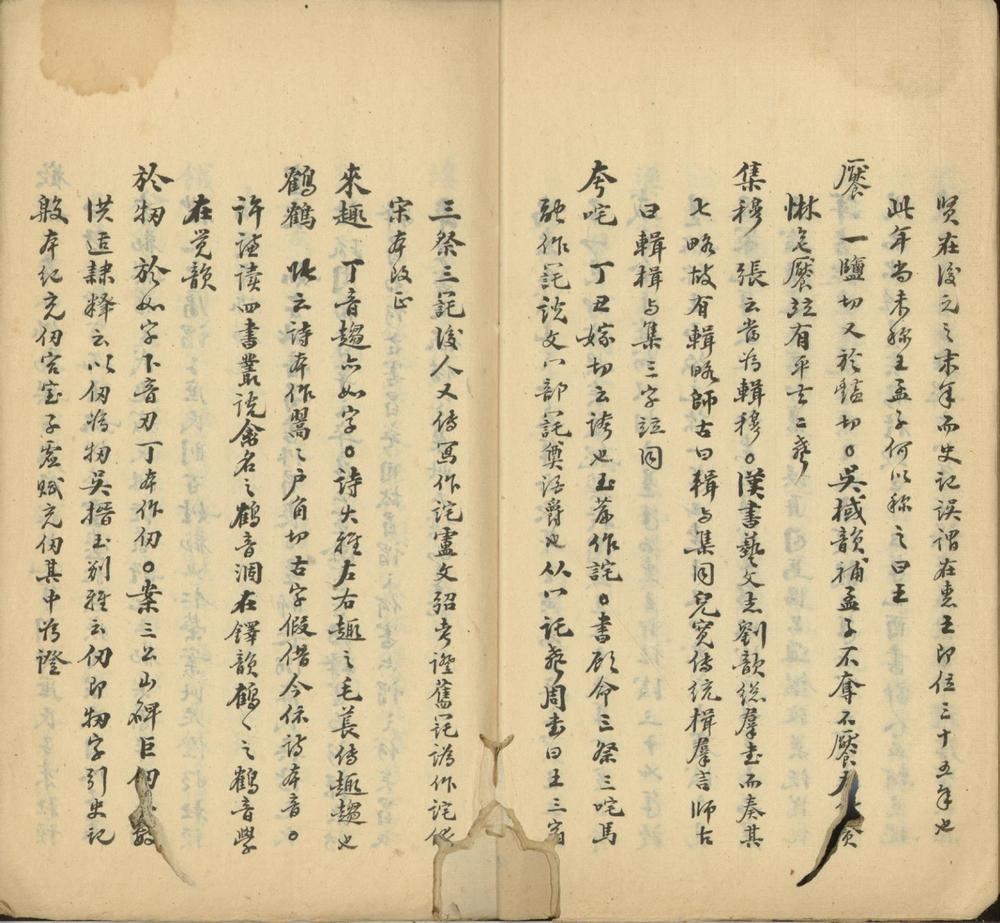 賢在後元之末年而史記誤謂在惠王即位三十五年也
此年尚未稱王孟子何以稱之曰王
饜 一鹽切又於豔切○吳棫韻補孟子不奪不饜
懨 饜竝有平去二聲
集穆 張云當為輯穆○漢書藝文志劉歆總羣書而奏其
七略故有輯略師古曰輯与集同兒寬傳統楫羣言師古
曰輯楫与集三字竝同
夸咤 丁丑嫁切云誇也玉篇作詫○書顧命三祭三咤馬
融作託說文冖部託奠酒爵也从冖託聲周書曰王三宿
三祭三託後人又傳寫作詫盧文弨考證舊託譌作詫依
宋本改正
來趣 丁音趨亦如字○詩大雅左右趣之毛萇傳趣趨也
鶴鶴 張云詩本作翯翯戶角切古字假借今依詩本音○
許謙讀四書叢說禽名之鶴音涸在鐸韻鶴鶴之鶴音學
在覺韻
於牣 於如字下音刃丁本作仞○案三公山碑巨仞 數
洪适隸釋云以仞為牣吳搢玉別雅云仞即牣字引史記
殷本紀充仞宮室子虛賦充仞其中為證